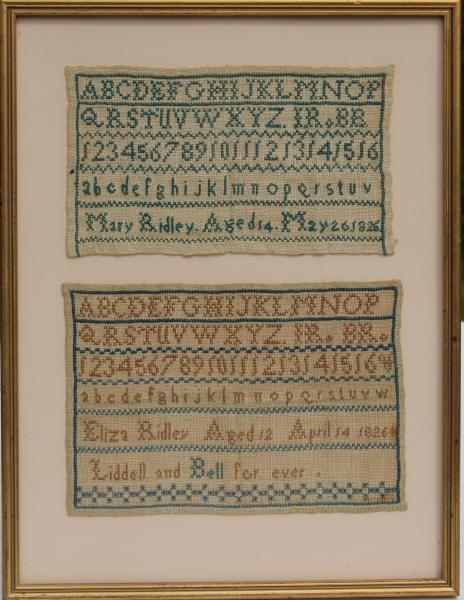 ABCDEFGHIJKLMNOP
QRSTUVWXYZ. IR. BR
12345678910 11 12 13 14 15 16
abcdefghijklmnopqrstuv
Mary Ridley. Aged 14. May 26 1826
ABCDEFGHIJKLMNOP
QRSTUVWXYZ. IR. BR.
12345678910 11 12 13 14 15 16
abcdefghijklmnopqrstuvw
Eliza Ridley Aged 12 April 14 1826
Liddell and Bell for ever.